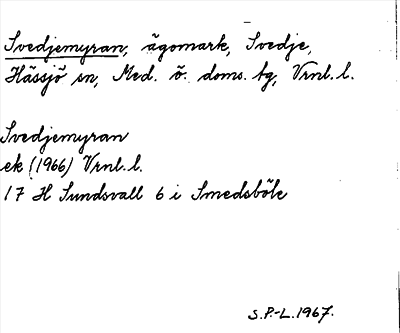 Svedjemyran, ägomark, Svedje,
Hässjö sn, Med. ö. doms. tg, Vrnl. l.
Svedjemyran
ek (1966) Vrnl. l.
17 H Sundsvall 6 i Smedsböle
S.P.-L. 1967.